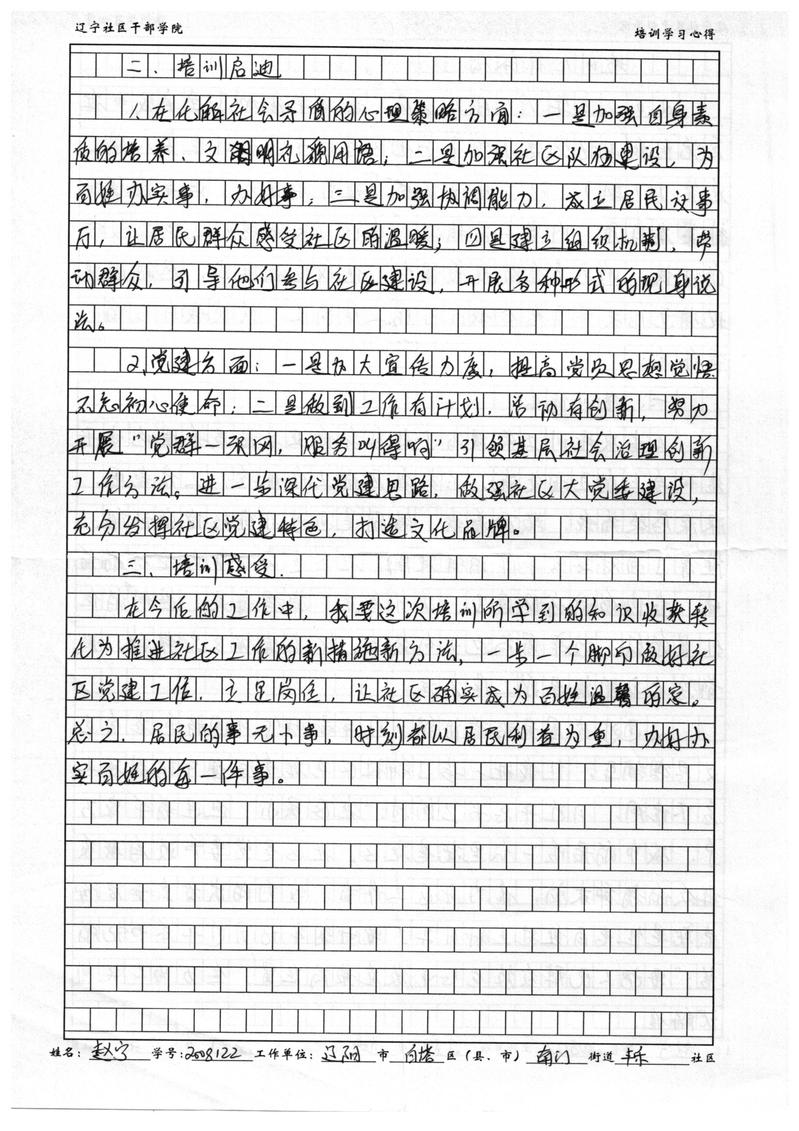 辽宁社区干部学院 培训学习心得
二、培训启迪
1、在化解社会矛盾的心理策略方面：一是加强自身素
质的培养、文明礼貌用语；二是加强社区队伍建设，为
百姓办实事，办好事；三是加强协调能力，成立居民议事
厅，让居民群众感受社区的温暖；四是建立组织机制，带
动群众，引导他们参与社区建设，开展各种形式的现身说
法。
2、党建方面：一是加大宣传力度，提高党员思想觉悟
不忘初心使命；二是做到工作有计划，活动有创新，努力
开展“党群一张网，服务叫得响”引领基层社会治理创新
工作方法。进一步深化党建思路，做强社区大党委建设，
充分发挥社区党建特色，打造文化品牌。
三、培训感受.
在今后的工作中，我要这次培训所学到的知识收获转
化为推进社区工作的新措施新方法，一步一个脚印做好社
区党建工作，立足岗位，让社区确实成为百姓温馨的家。
总之，居民的事无小事，时刻都以居民利益为重，办好办
实百姓的每一件事。
姓名：赵宁 学号：2008122 工作单位：辽阳 市 白塔 区（县、市） 南门 街道 社区